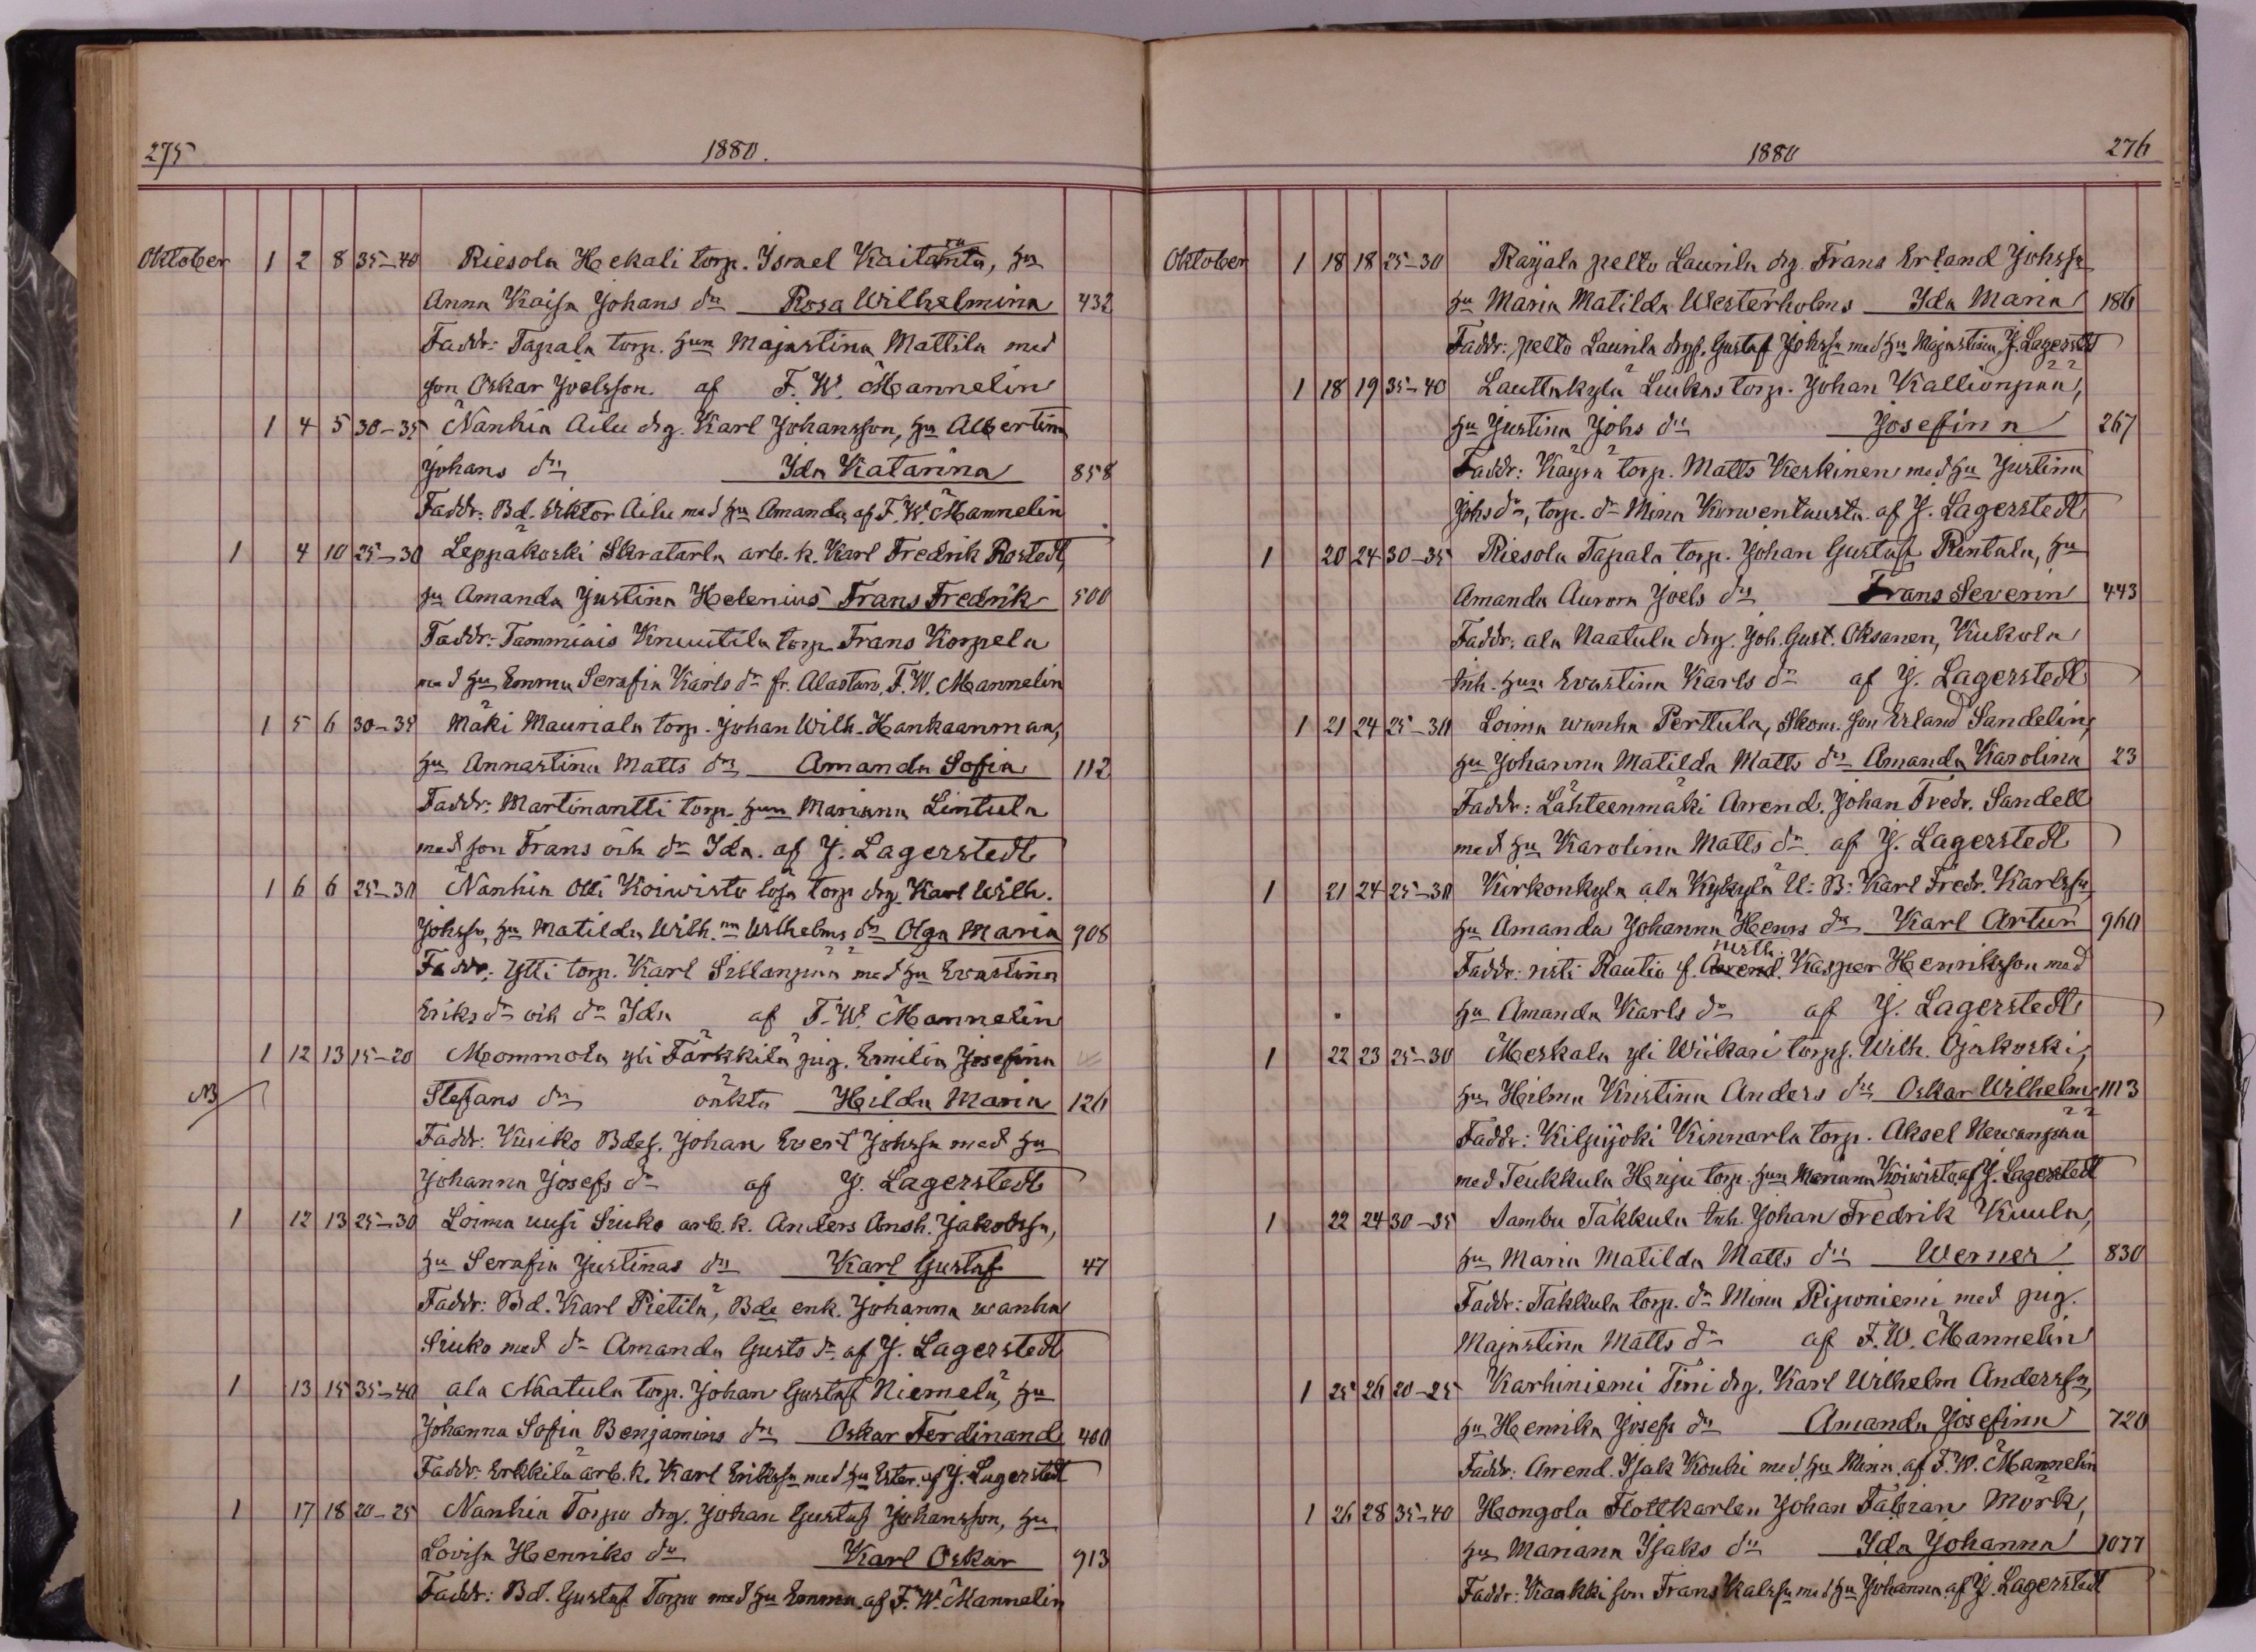 275 1880.
Oktober 1 2 8 35-40 Riesola Hekali torp. Israel Kaitaranta, hu
Anna Kaisa Johans dr Rosa Wilhelmina 432
Faddr: Tapala torp. hun Majastina Mattila med
son Oskar Joelsson. af F. W. Mannelin
1 4 5 30-35 Nanhia Ailu drg. Karl Johansson, hu Albertina
Johans dr Ida Katarina 858
Faddr: Bd. Viktor Ailu med hu Amanda, af F. W. Mannelin
1 4 10 25-30 Leppäkoski Skratarla arb. k. Karl Fredrik Rostedt,
hu Amanda Justina Helenius Frans Fredrik 500
Faddr: Tammiais Knuutila torp. Frans Korpela
med hu Emma Serafia Karls dr fr. Alastaro, F. W. Mannelin
1 5 6 30-35 Mäki Mauriala torp. Johan Wilh. Hankaanmaa,
hu Annastina Matts dr Amanda Sofia 112
Faddr: Martinantti torp. hun Mariana Lintula
med son Frans och dr Ida. af J. Lagerstedt
1 6 6 25-30 Nanhia Olli Koiwisto torp drg. Karl Wilh.
Johssn, hu Matilda Wilh. Wilhelms dr Olga Maria 908
Faddr: Ylli torp. Karl Sillanpää med hu Evastina
Eriks dr och dr Ida af F. W. Mannelin
1 12 13 15-20 Mommola yli Färkkilä pig. Emilia Josefina
NB Stefans dr oäkta Hilda Maria 126
Faddr: Kusiko Bdes. Johan Evert Johssn med hu
Johanna Josefs dr af J. Lagerstedt
1 12 13 25-30 Loima uusi Siuko arb. k. Anders Ansh. Jakobssn,
hu Serafia Justinas dr Karl Gustaf 47
Faddr: Bd. Karl Pietilä, Bde enk. Johanna wanha
Siuko med dr Amanda Gusts dr. af J. Lagerstedt
1 13 15 35-40 ala Naatula torp. Johan Gustaf Niemelä, hu
Johanna Sofia Benjamins dr Oskar Ferdinand 460
Faddr: Erkkilä arb. k. Karl Erikssn med hu Ester. af J. Lagerstedt
1 17 18 20-25 Nanhia Torpo drg. Johan Gustaf Johansson, hu
Lovisa Henriks dr Karl Oskar 913
Faddr: Bd. Gustaf Torpo med hu Emma. af F. W. Mannelin
1880 276
Oktober 1 18 18 25-30 Rayala pelto Laurila drg. Frans Erland Johssn
hu Maria Matilda Westerholms Ida Maria 186
Faddr: pelto Laurila drgs. Gustaf Johssn med hu Majastina, J. Lagerstdt
1 18 19 35-40 Lauttakylä Luukas torp. Johan Kallionpää,
hu Justina Johs dr Josefina 267
Faddr: Käyrä torp. Matts Keskinen med hu Justina
Johs dr, torp. dr Mina Korwentausta. af J. Lagerstedt
1 20 24 30-35 Riesola Tapala torp. Johan Gustaf Rintala, hu
Amanda Aurora Joels dr Frans Severin 443
Faddr: ala Naatula drg. Joh. Gust. Oksanen, Kukola
inh. hun Evastina Karls dr af J. Lagerstedt
1 21 24 25-30 Loima wanha Perttula, Skom. son Erland Sandelin,
hu Johanna Matilda Matts dr Amanda Karolina 23
Faddr: Lähteenmäki Arrend. Johan Fredr. Sandell
med hu Karolina Matts dr. af J. Lagerstedt
1 21 24 25-30 Kirkonkylä ala Kykylä U: B: Karl Fredr. Karlssn,
hu Amanda Johanna Henrs dr Karl Artur 960
Faddr: risti Rautio f. Arrend. Kasper Henriksson med
hu Amanda Karls dr af J. Lagerstedt
1 22 23 25-30 Meskala yli Wiikari torps. Wilh. Ojakoski,
hu Hilma Kristina Anders dr Oskar Wilhelm 1113
Faddr: Kilpijoki Kinnarla torp. Aksel Newanpää
med Teukkula Harju torp. hun Mariana Koiwisto, af J. Lagerstedt
1 22 24 30-35 Sambu Täkkula inh. Johan Fredrik Kuula,
hu Maria Matilda Matts dr Werner 830
Faddr: Takkula torp. dr Mina Riponiemi med pig.
Majastina Matts dr af F. W. Mannelin
1 25 26 20-25 Karhiniemi Tini drg. Karl Wilhelm Anderssn,
hu Henrika Josefs dr Amanda Josefina 720
Faddr: Arrend. Isak Kouhi med hu Mina. af F. W. Mannelin
1 26 28 35-40 Hongola Flottkarlen Johan Fabian Mörk,
hu Mariana Isaks dr Ida Johanna 1077
Faddr: Kaakki son Frans Kalssn med hu Johanna. af J. Lagerstedt